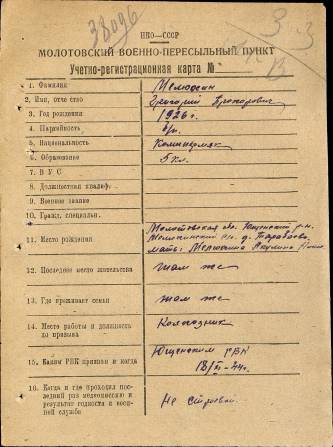 38096
3-3
В
НКО—СССР
МОЛОТОВСКИЙ ВОЕННО-ПЕРЕСЫЛЬНЫЙ ПУНКТ
Учетно-регистрационная карта №
1. Фамилия Мелюхин
2. Имя, отчество Григорий Прохорович
3. Год рождения 1926 г.
4. Партийность б/п.
5. Национальность
6. Образование 5 кл.
7. В У С
8. Должностная квалиф.
9. Военное звание
10. Гражд. специальн.
11. Место рождения Молотовская обл. Юсьвенский р-н.
мать: Мелюхина Акулина
12. Последнее место жительства там же
13. Где проживает семья там же
14. Место работы и должность до призыва Колхозник
15. Каким РВК призван и когда Юсьвенским РВК
18/XI-44г.
16. Когда и где проходил последний раз медкомиссию и результат годности к военной службе Не строевой.